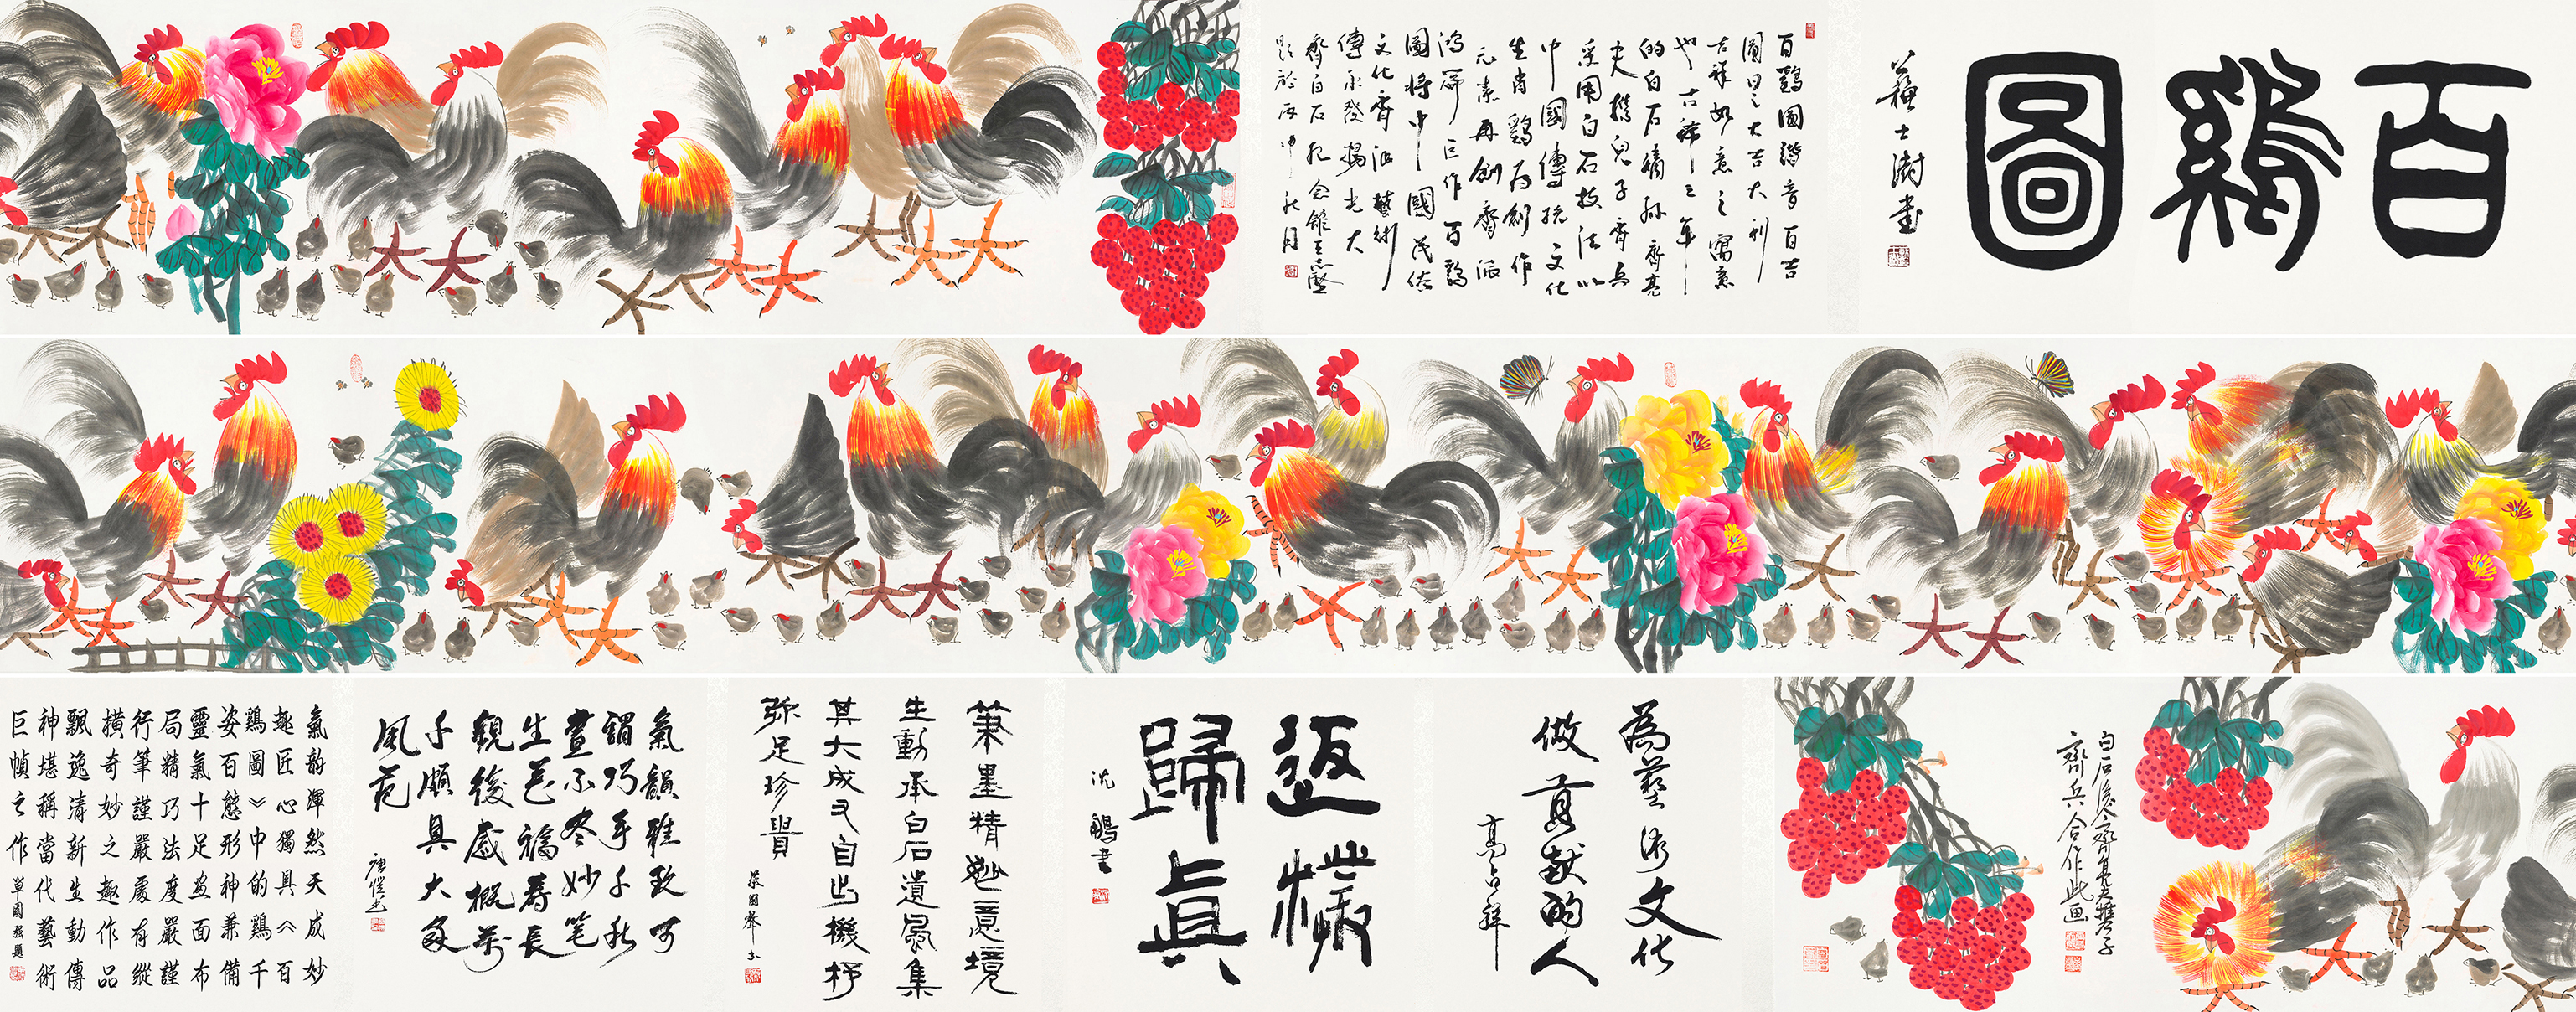 百鷄圖
蘇士澍書
百鷄圖諧音百吉
圖因之大吉大利
吉祥如意之寓意
也古稀之年
的白石嫡孫齊亮
夫攜兒子齊兵
采用白石技法以
中國傳統文化
生肖鷄為創作
元素再創齊派
鴻篇巨作百鷄
圖將中國民俗
文化齊派藝術
傳承發揚光大
齊白石紀念館王志
題於丙申秋月
白石後人齊亮夫攜子
齊兵合作此画
為藝術文化
做貢獻的人
高占祥
返樸
歸真
沈鵬書
筆墨精妙意境
生動承白石遺風集
其大成又自出機杼
弥足珍貴
蔡國聲书
氣韻雅致可
謂巧手千秋
畫不尽妙笔
生花福壽長
觀後感概萬
千頗具大家
風范
氣韵渾然天成妙
趣匠心獨具《百
鷄圖》中的鷄千
姿百態形神兼備
靈氣十足画面布
局精巧法度嚴謹
行筆謹嚴處有縱
橫奇妙之趣作品
飄逸清新生動傳
神堪稱當代藝術
巨幀之作
單國強題